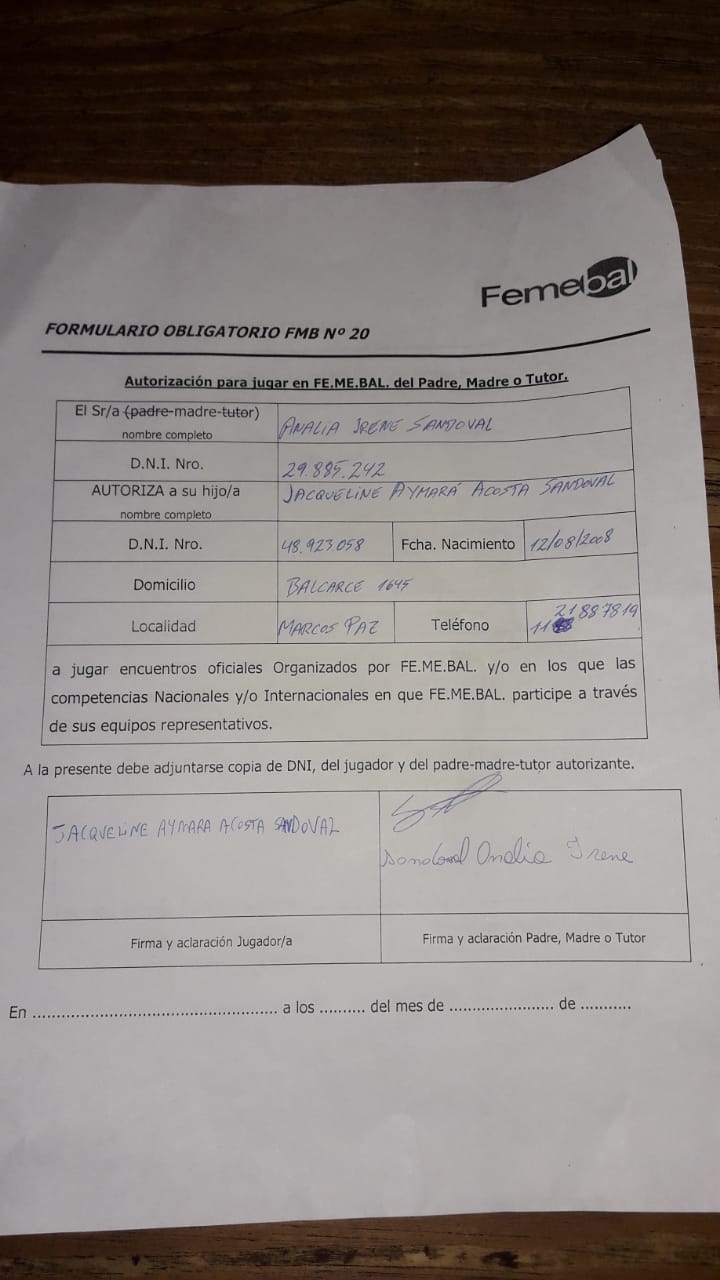 Femebal
FORMULARIO OBLIGATORIO FMB Nº 20
Autorización para jugar en FE.ME.BAL. del Padre, Madre o Tutor.
El Sr/a (padre-madre-tutor) ANALIA IRENE SANDOVAL
nombre completo
D.N.I. Nro. 29.885.242
AUTORIZA a su hijo/a JACQUELINE AYMARÁ ACOSTA SANDOVAL
nombre completo
D.N.I. Nro. 48.923.058 Fcha. Nacimiento 12/08/2008
Domicilio BALCARCE 1645
Localidad MARCOS PAZ Teléfono 11 21887819
a jugar encuentros oficiales Organizados por FE.ME.BAL. y/o en los que las
competencias Nacionales y/o Internacionales en que FE.ME.BAL. participe a través
de sus equipos representativos.
A la presente debe adjuntarse copia de DNI, del jugador y del padre-madre-tutor autorizante.
JACQUELINE AYMARA ACOSTA SANDOVAL
Sandoval Analia Irene
Firma y aclaración Jugador/a Firma y aclaración Padre, Madre o Tutor
En ................................................. a los .......... del mes de ...................... de ...........